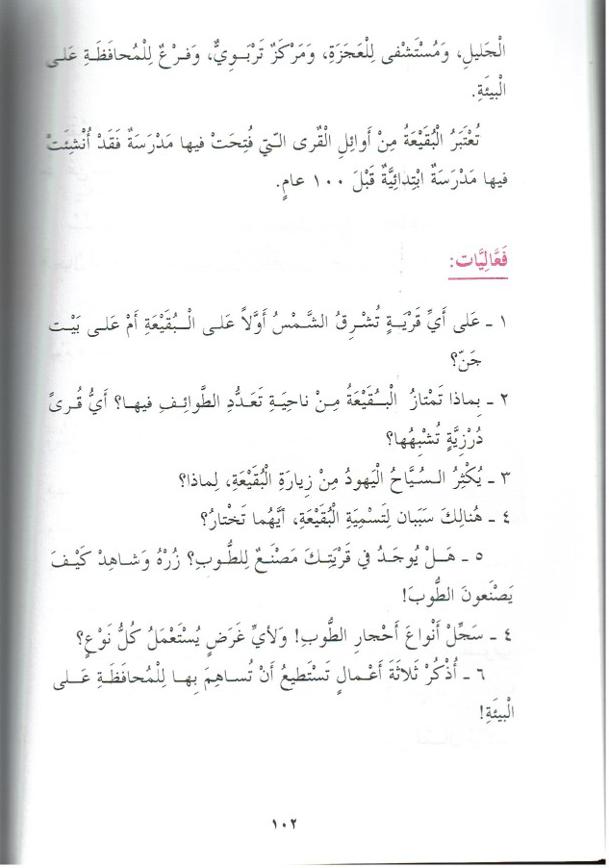 الْجَليلِ، وَمُسْتَشْفى لِلْعَجَزَةِ، وَمَرْكَزٌ تَرْبَوِيٌّ، وَفَرْعٌ لِلْمُحافَظَةِ عَلى
الْبيئَةِ.
تُعْتَبَرُ الْبُقَيْعَةُ مِنْ أَوائِلِ الْقُرى الَّتي فُتِحَتْ فيها مَدْرَسَةٌ فَقَدْ أُنْشِئَتْ
فيها مَدْرَسَةٌ ابْتِدائِيَّةٌ قَبْلَ ١٠٠ عامٍ.
فَعَّالِيَّات:
١ ـ عَلى أَيِّ قَرْيَةٍ تُشْرِقُ الشَّمْسُ أَوَّلاً عَلى الْبُقَيْعَةِ أَمْ عَلى بَيْت
جَنّ؟
٢ ـ بِماذا تَمْتازُ الْبُقَيْعَةُ مِنْ ناحِيَةِ تَعَدُّدِ الطَّوائِفِ فيها؟ أَيُّ قُرىً
دُرْزِيَّةٍ تُشْبِهُها؟
٣ ـ يُكْثِرُ السُيَّاحُ الْيَهودُ مِنْ زِيارَةِ الْبُقَيْعَةِ، لِماذا؟
٤ ـ هُنالِكَ سَبَبان لِتَسْمِيَةِ الْبُقَيْعَةِ، أَيَّهُما تَخْتارُ؟
٥ ـ هَلْ يُوجَدُ في قَرْيَتِكَ مَصْنَعٌ لِلطُّوبِ؟ زُرْهُ وَشاهِدْ كَيْفَ
يَصْنَعونَ الطُّوبَ!
٤ ـ سَجِّلْ أَنْواعَ أَحْجارِ الطُّوبِ! وَلأَيِّ غَرَضٍ يُسْتَعْمَلُ كُلُّ نَوْعٍ؟
٦ ـ أُذْكُرْ ثَلاثَةَ أَعْمالٍ تَسْتَطيعُ أَنْ تُساهِمَ بِها لِلْمُحافَظَةِ عَلى
الْبيئَةِ!
١٠٢